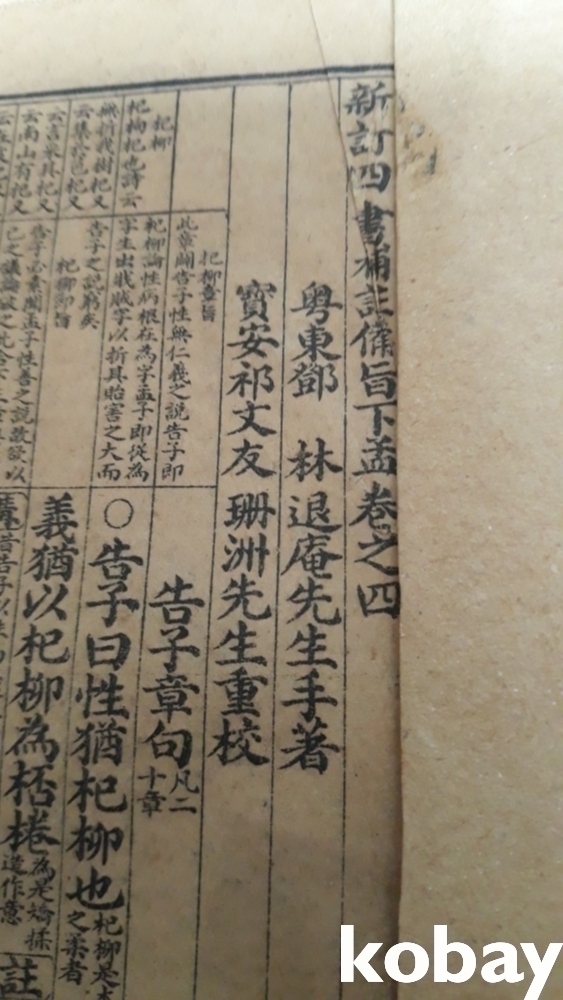 新訂四書補註備旨下孟卷之四
粤東鄧 林退庵先生手著
寶安祁文友珊洲先生重校
告子章句凡二十章
○告子曰性猶杞柳也杞柳是
之柔者
義猶以杞柳為桮棬為是矯揉
造作意
註
杞柳章旨
此章闢告子性無仁義之說告子即
杞柳論性病根在為字孟子即從為
字生出戕賊字以折其貽害之大而
告子之說窮矣
杞柳節旨
杞柳
杞枸杞也詩云
無折我樹杞又
云集於苞杞又
云言采其杞又
云南山有杞又
kobay